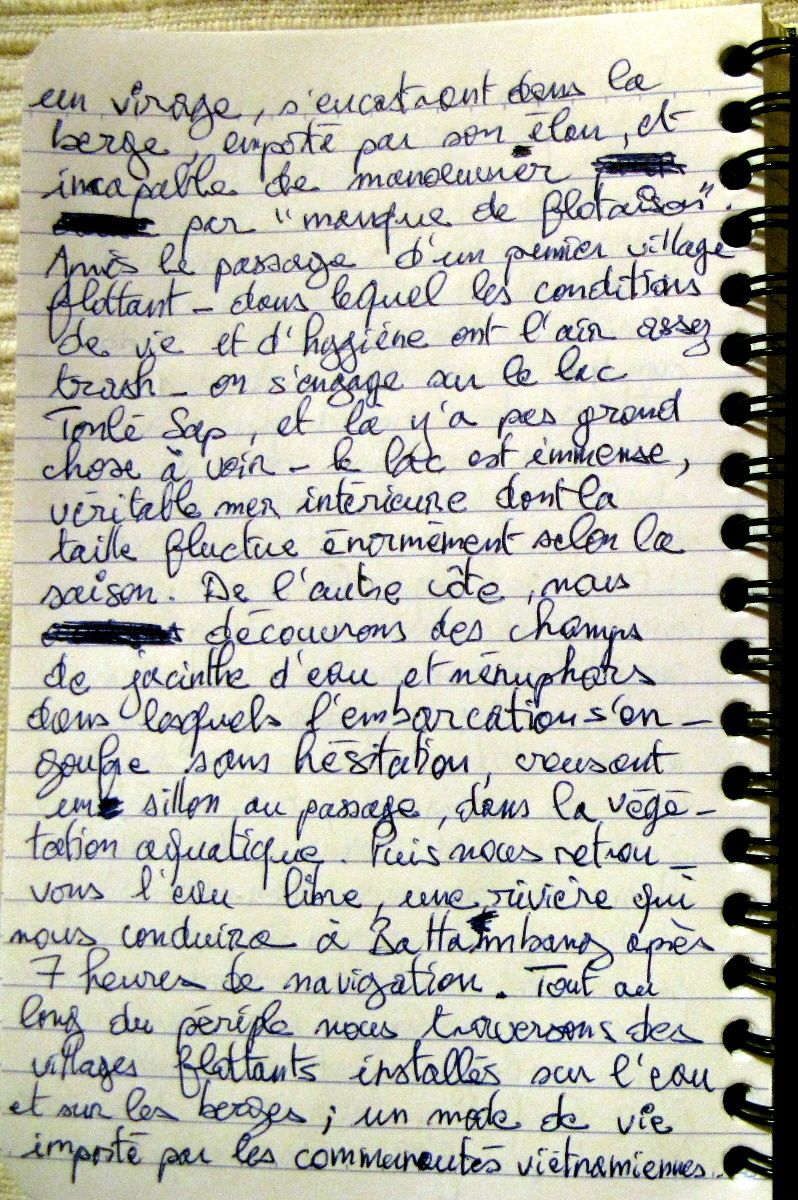 un virage, s'encastrant dans la
berge, emporté par son élan, et
incapable de manoeuvrer
par "manque de flotaison".
Après le passage d'un premier village
flottant - dans lequel les conditions
de vie et d'hygiène ont l'air assez
trash - on s'engage sur le lac
Tonlé Sap, et là y'a pas grand
chose à voir - le lac est immense,
véritable mer intérieure dont la
taille fluctue énormément selon la
saison. De l'autre côté, nous
découvrons des champs
de jacinthe d'eau et nénuphars
dans lesquels l'embarcation s'en-
gouffre sans hésitation, creusant
un sillon au passage, dans la végé-
tation aquatique. Puis nous retrou-
vons l'eau libre, une rivière qui
nous conduira à Battambang après
7 heures de navigation. Tout au
long du périple nous traversons des
villages flottants installés sur l'eau
et sur les berges ; un mode de vie
importé par les communautés vietnamiennes.